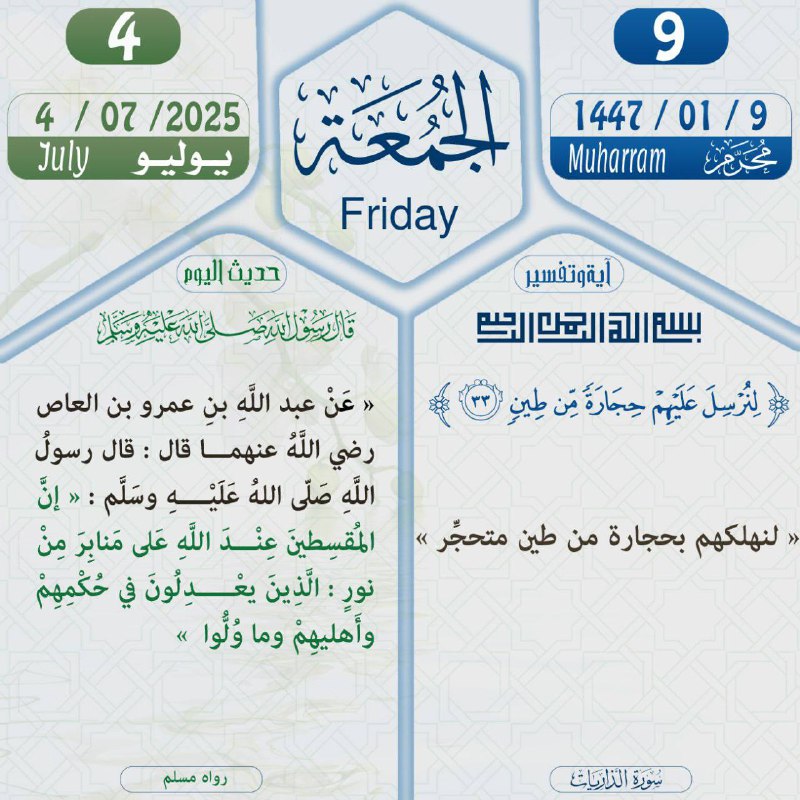 4
4 / 07 /2025
July يوليو
الجُمُعَة
Friday
9
1447 / 01 / 9
Muharram مُحَرَّم
حديث اليوم
قَالَ رَسُوْلُ اللهِ صَلَّى اللهُ عَلَيْهِ وَسَلَّم
« عَنْ عبد اللَّهِ بنِ عمرو بن العاص
رضي اللَّهُ عنهمـــا قال : قال رسولُ
اللَّهِ صَلّى اللهُ عَلَيْـــــهِ وسَلَّم : « إنَّ
المُقسِطينَ عِنْـــدَ اللَّهِ عَلى مَنابِرَ مِنْ
نورٍ : الَّذِينَ يعْــــــدِلُونَ في حُكْمِهِمْ
وأَهليهِمْ وما وُلُّوا »
رواه مسلم
آية وتفسير
بسم الله الرحمن الرحيم
﴿ لِنُرْسِلَ عَلَيْهِمْ حِجَارَةً مِّن طِينٍ ٣٣ ﴾
« لنهلكهم بحجارة من طين متحجِّر »
سُورَةُ الذَّارِيَات